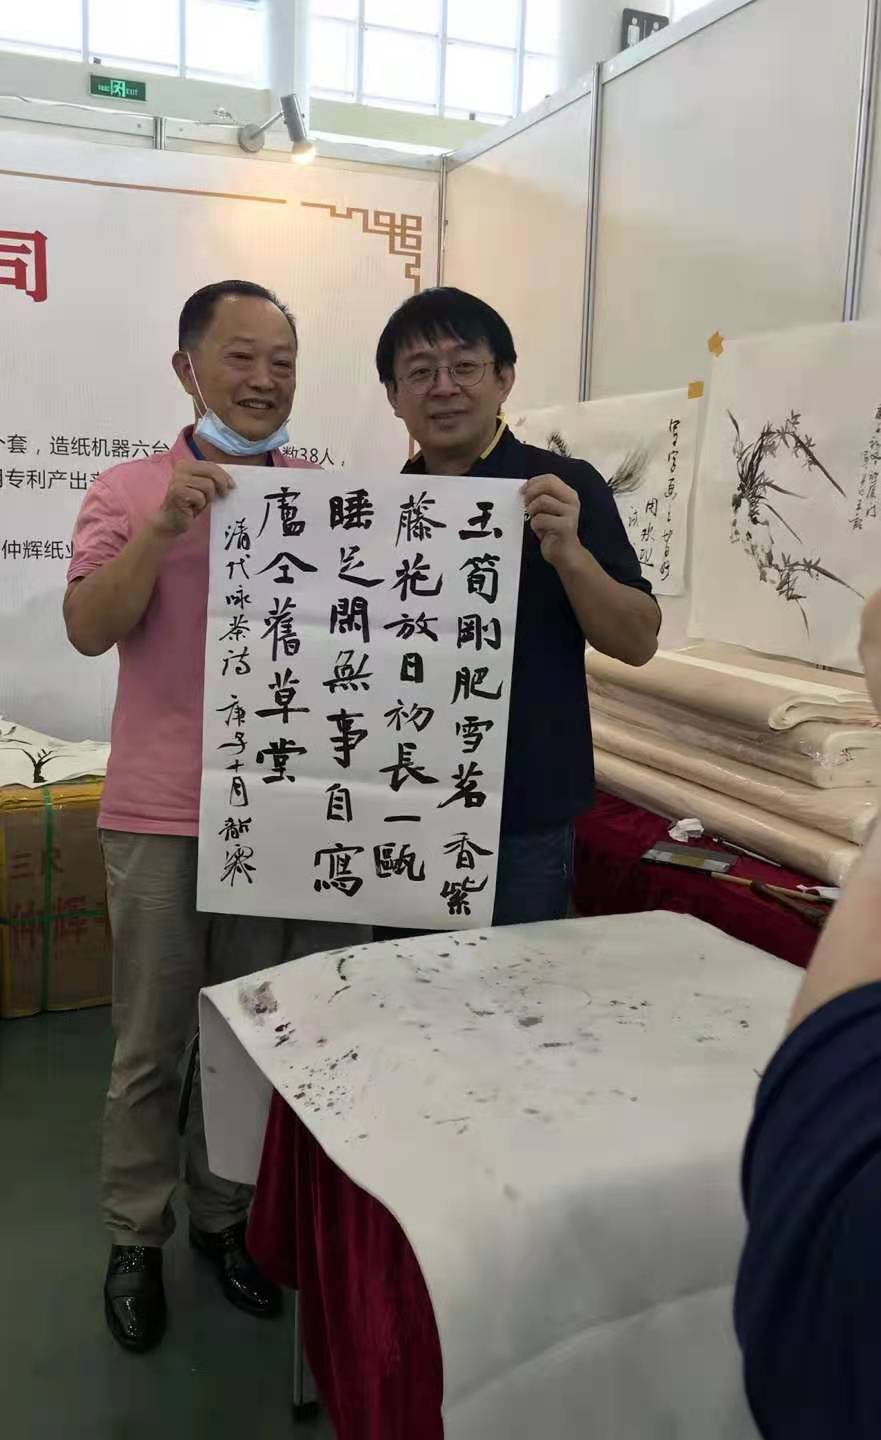 EXIT
同
个套，造纸机器六台
数38人，
用专利产出
仲辉纸业
玉筍剛肥雪茗香紫
藤花放日初長一甌
睡足閑無事自寫
盧仝舊草堂
清代咏茶诗 庚子十月
三尺
仲辉